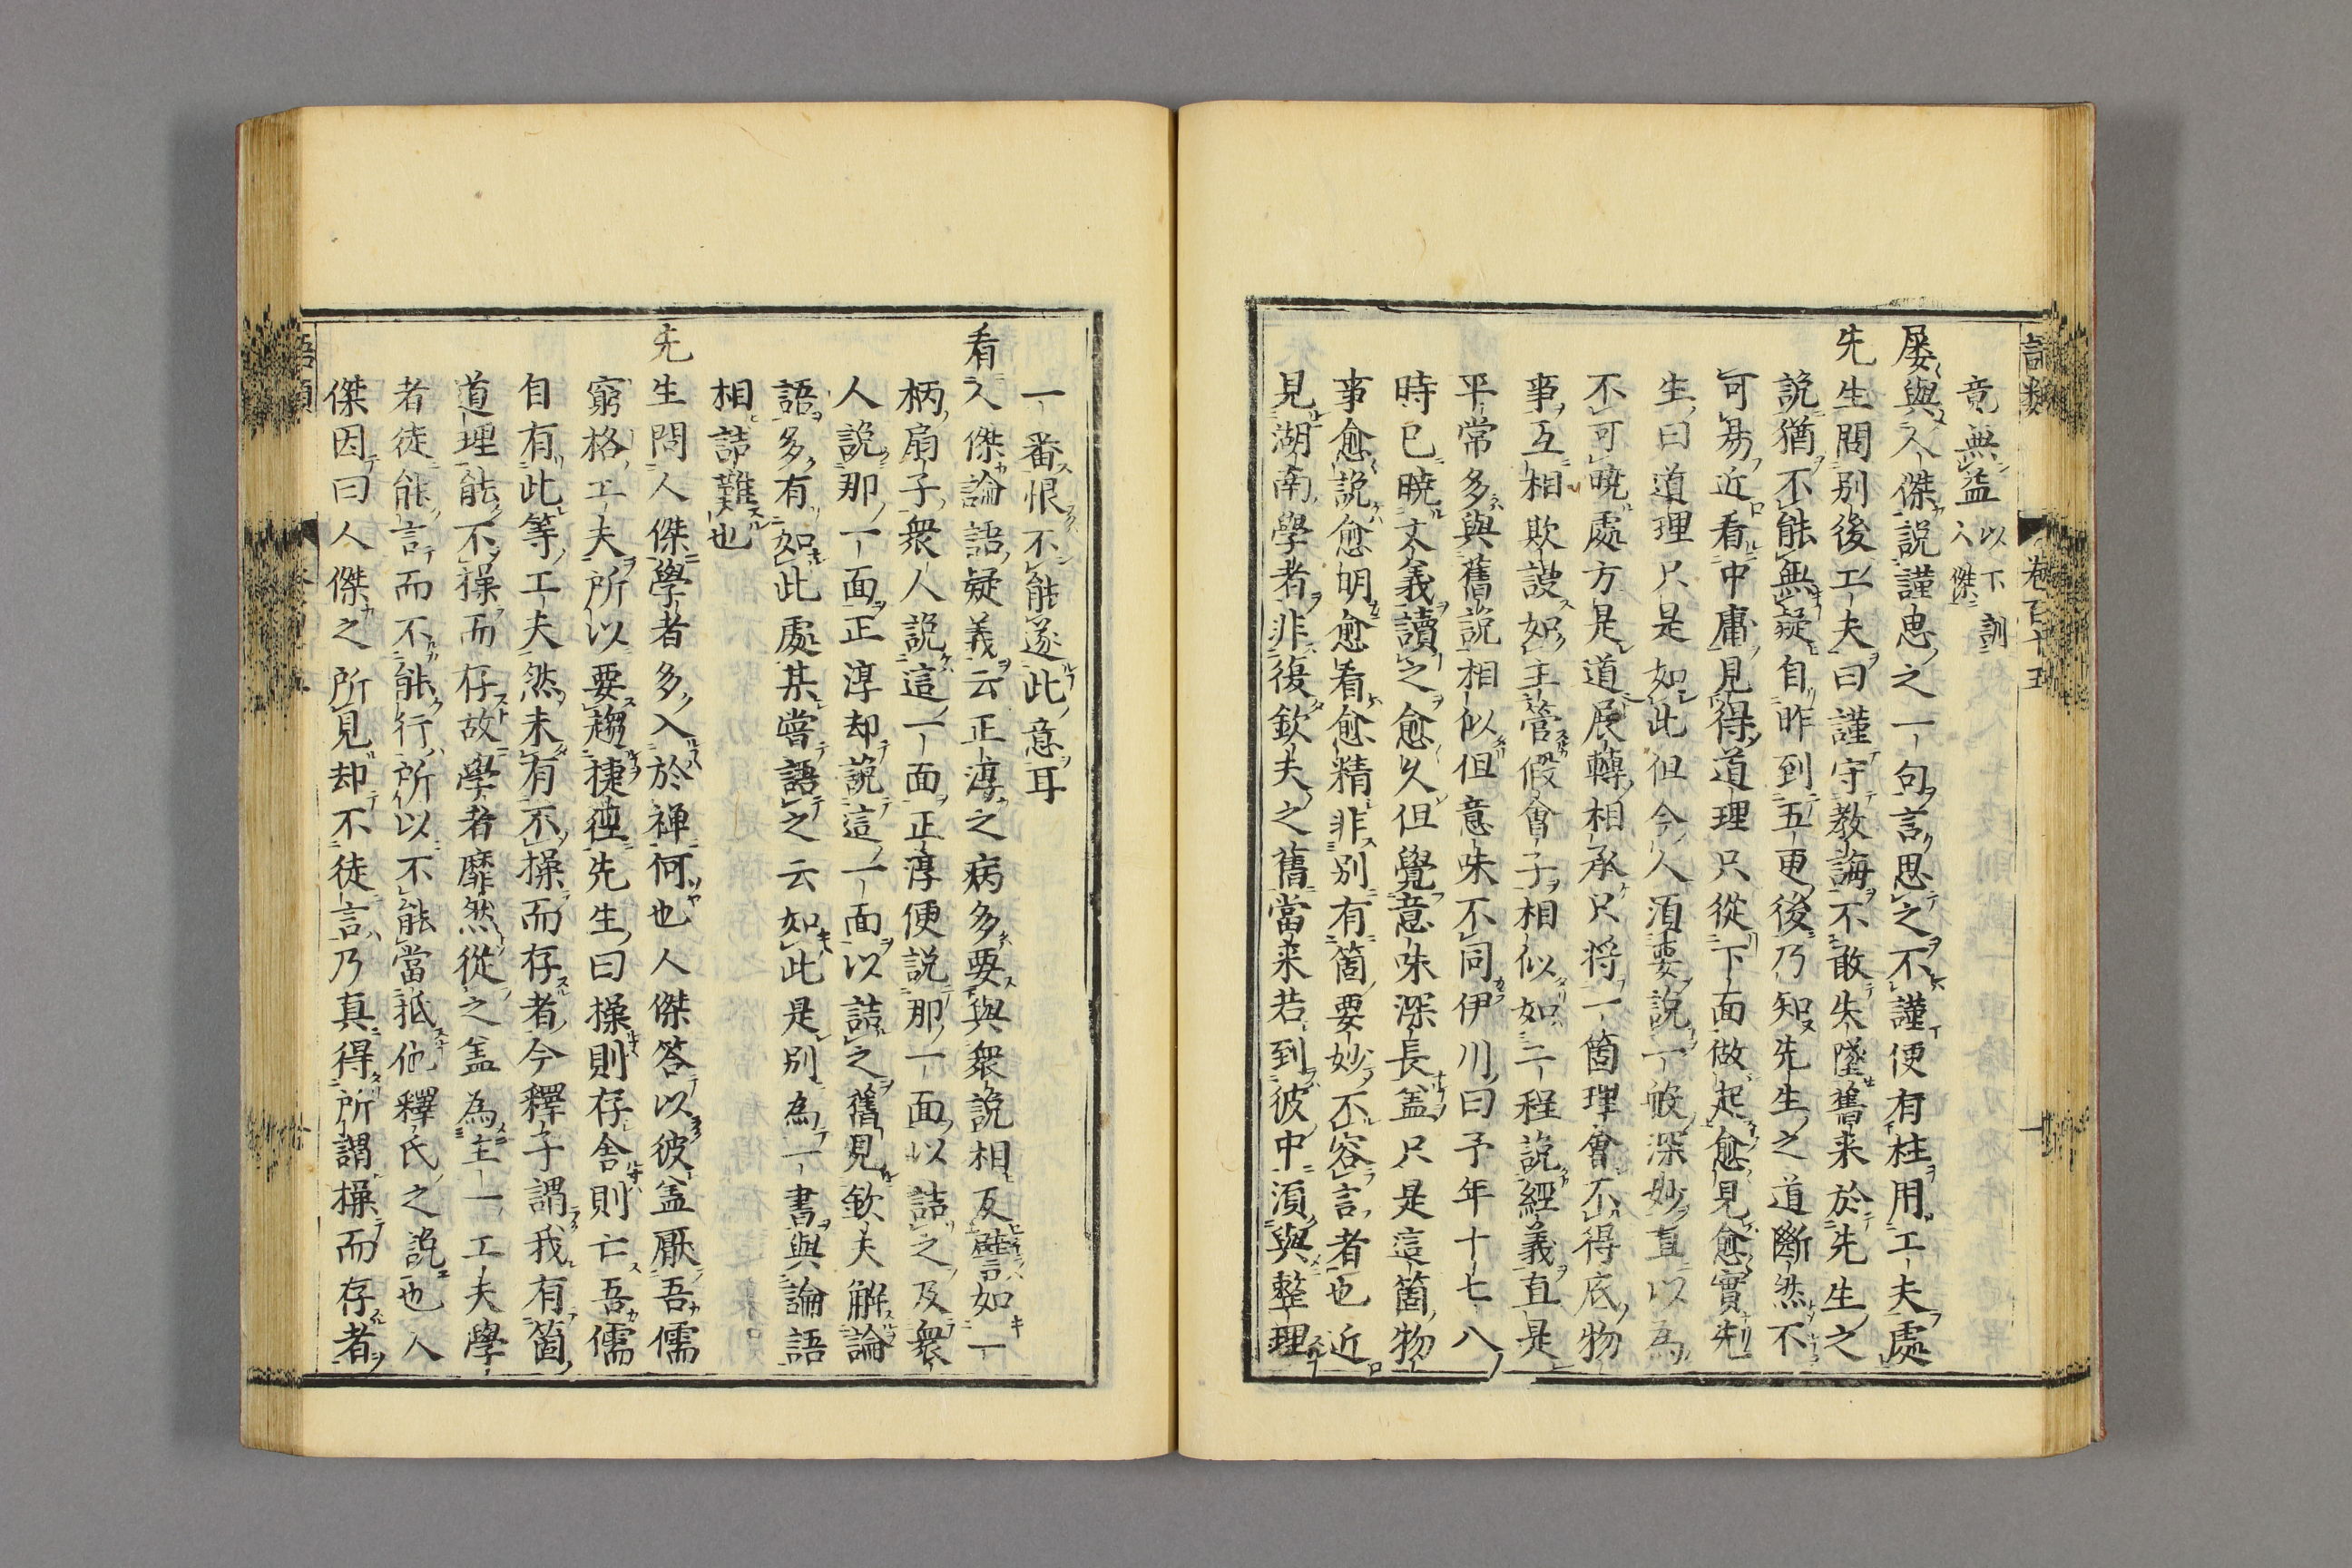 語類 卷百十五
竟無益以下訓
人傑
屡與人傑說謹思之一句言思之不謹便有枉用工夫處
先生問別後工夫曰謹守教誨不敢失墜舊来於先生之
說猶不能無疑自昨到五更後乃知先生之道斷然不
可易近看中庸見得道理只從下面做起愈見愈實先
生曰道理只是如此但今人須要說一般深妙直以為
不可曉處方是道展轉相承只将一箇理會不得底物
事互相欺謾如主管假會子相似如二程說經義直是
平常多與舊說相似但意味不同伊川曰予年十七八
時已曉文義讀之愈久但覺意味深長盖只是這箇物
事愈說愈明愈看愈精非別有箇要妙不容言者也近
見湖南學者非復欽夫之舊當来若到彼中須與整理
一番恨不能遂此意耳
看人傑論語疑義云正淳之病多要與衆說相反譬如一
柄扇子衆人說這一面正淳便説那一面以詰之及衆
人說那一面正淳却說這一面以詰之舊見欽夫解論
語多有如此處某嘗語之云如此是別為一書與論語
相詰難也
先生問人傑學者多入於禅何也人傑答以彼盖厭吾儒
窮格工夫所以要趨捷徑先生曰操則存舍則亡吾儒
自有此等工夫然未有不操而存者今釋子謂我有箇
道理能不操而存故學者靡然從之盖為主一工夫學
者徒能言而不能行所以不能當抵他釋氏之說也人
傑因曰人傑之所見却不徒言乃真得所謂操而存者